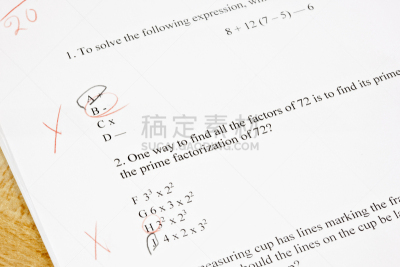 20
1. To solve the following expression,
8 + 12 (7 – 5) — 6
A
B -
C x
D —
搞定素材
2. One way to find all the factors of 72 is to find its prime
the prime factorization of 72?
F 3³ x 2²
G 6 x 3 x 2²
H 3² x 2³
J 4 x 2 x 3²
easuring cup has lines marking the fra
hould the lines on the cup be la